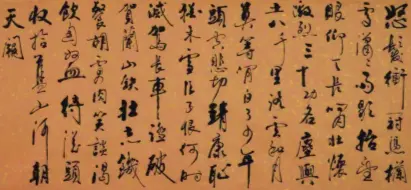 怒髮衝冠憑欄
處瀟瀟雨歇抬望
眼仰天長嘯壯懷
激烈三十功名塵與
土八千里路雲和月
莫等閒白了少年
頭空悲切靖康恥
猶未雪臣子恨何時
滅駕長車踏破
賀蘭山缺壯志飢
餐胡虜肉笑談渴
飲匈奴血待從頭
收拾舊山河朝
天闕